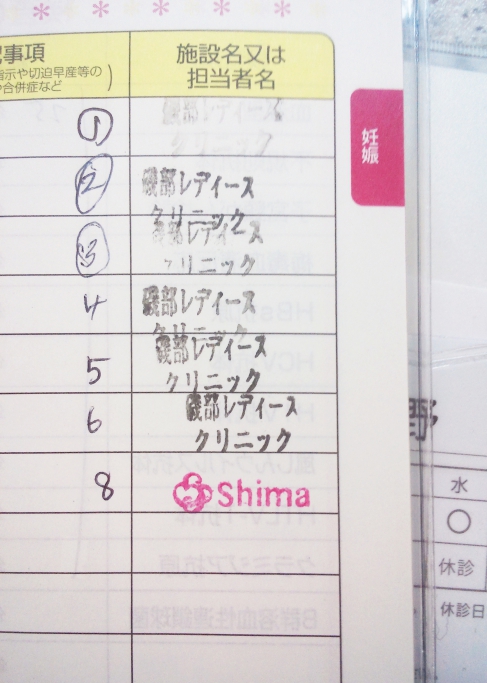 事項
指示や切迫早産等の
合併症など
施設名又は
担当者名
妊娠
①
磯部レディース
クリニック
②
磯部レディース
クリニック
③
磯部レディース
クリニック
4
磯部レディース
クリニック
5
磯部レディース
クリニック
6
磯部レディース
クリニック
8
Shima
野
水
〇
休診
休診日